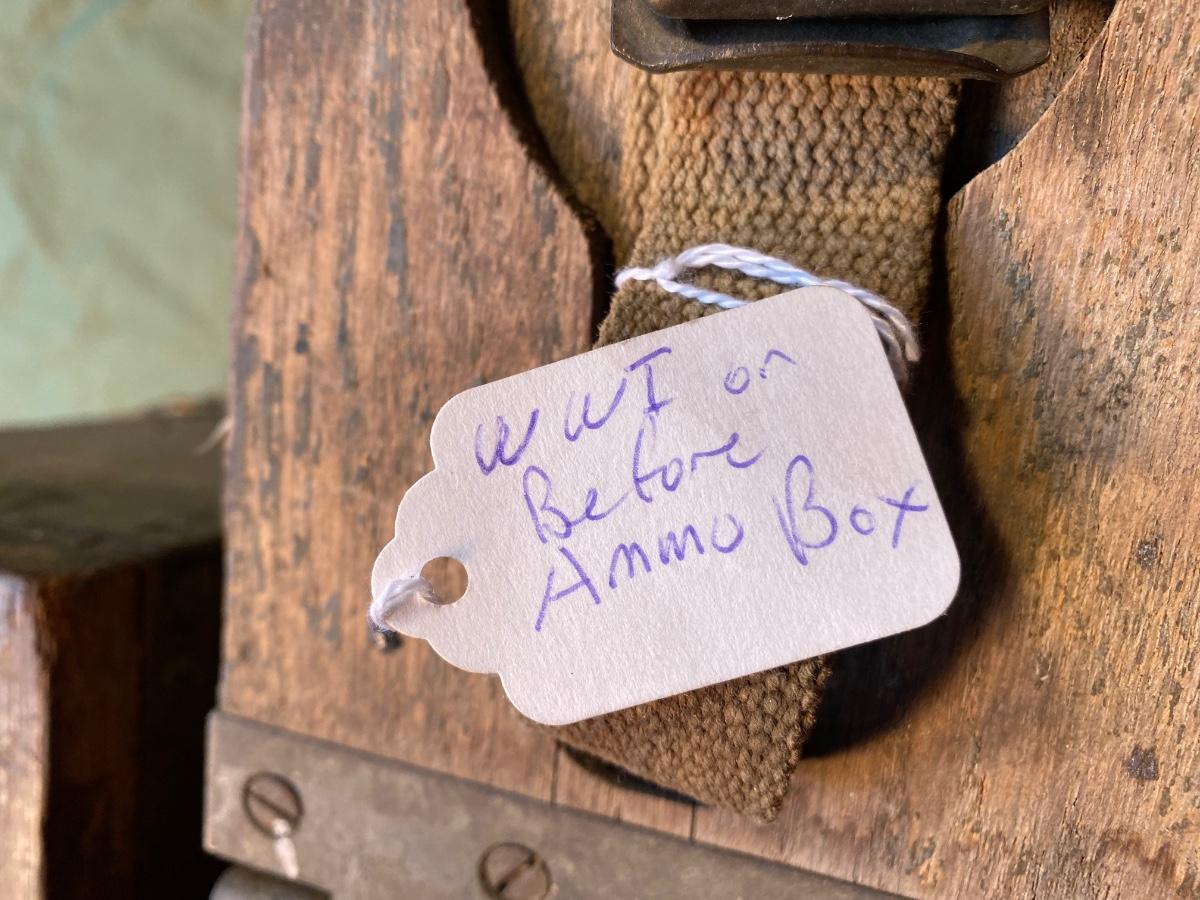 WWI or
Before
Ammo Box